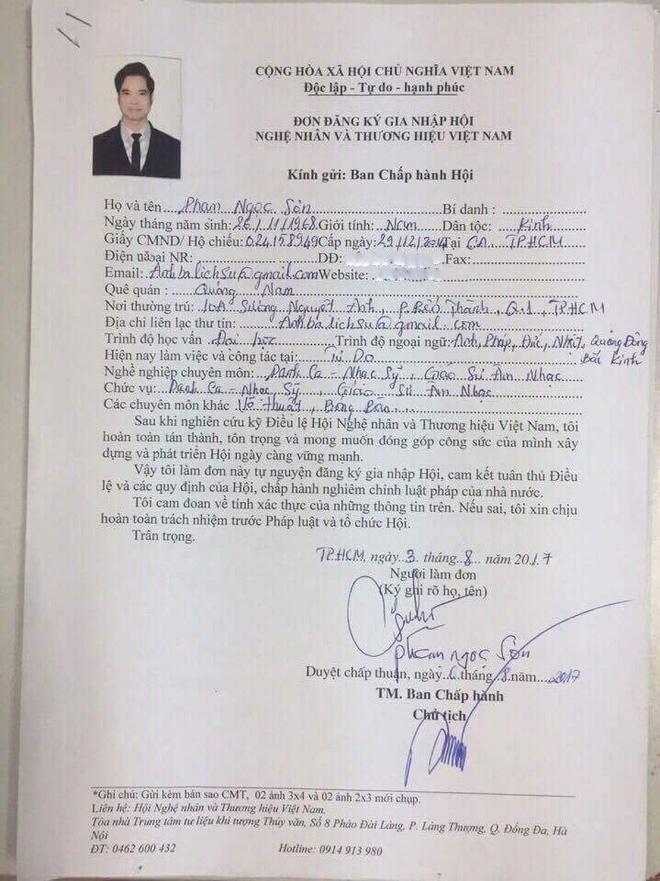 CỘNG HÒA XÃ HỘI CHỦ NGHĨA VIỆT NAM
Độc lập - Tự do - hạnh phúc
ĐƠN ĐĂNG KÝ GIA NHẬP HỘI
NGHỆ NHÂN VÀ THƯƠNG HIỆU VIỆT NAM
Kính gửi: Ban Chấp hành Hội
Họ và tên Phan Ngọc Sơn Bí danh :
Ngày tháng năm sinh: 26/11/1968 Giới tính: Nam Dân tộc: Kinh
Giấy CMND/ Hộ chiếu: 024158949 Cấp ngày: 29/12/2014 Tại CA TPHCM
Điện thoại NR: DĐ: Fax:
Email: Anhbalichsu@gmail.com Website:
Quê quán : Quảng Nam
Nơi thường trú: 10A Sương Nguyệt Ánh, P. Bến Thành, Q.1, TPHCM
Địa chỉ liên lạc thư tín: Anhbalichsu@gmail.com
Trình độ học vấn Đại học Trình độ ngoại ngữ: Anh, Pháp, Đức, Nhật, Quảng Đông
Hiện nay làm việc và công tác tại: Tự Do Bắc Kinh
Nghề nghiệp chuyên môn: Danh Ca - Nhạc Sỹ, Giáo Sư Âm Nhạc
Chức vụ: Danh Ca - Nhạc Sỹ, Giáo Sư Âm Nhạc
Các chuyên môn khác Võ thuật, Bóng Bàn
Sau khi nghiên cứu kỹ Điều lệ Hội Nghệ nhân và Thương hiệu Việt Nam, tôi
hoàn toàn tán thành, tôn trọng và mong muốn đóng góp công sức của mình xây
dựng và phát triển Hội ngày càng vững mạnh.
Vậy tôi làm đơn này tự nguyện đăng ký gia nhập Hội, cam kết tuân thủ Điều
lệ và các quy định của Hội, chấp hành nghiêm chỉnh luật pháp của nhà nước.
Tôi cam đoan về tính xác thực của những thông tin trên. Nếu sai, tôi xin chịu
hoàn toàn trách nhiệm trước Pháp luật và tổ chức Hội.
Trân trọng.
TP.HCM, ngày 3 tháng 8 năm 2017
Người làm đơn
(Ký ghi rõ họ, tên)
phan ngọc Sơn
Duyệt chấp thuận, ngày 6 tháng 8 năm 2017
TM. Ban Chấp hành
Chủ tịch
*Ghi chú: Gửi kèm bản sao CMT, 02 ảnh 3x4 và 02 ảnh 2x3 mới chụp.
Liên hệ: Hội Nghệ nhân và Thương hiệu Việt Nam,
Tòa nhà Trung tâm tư liệu khí tượng Thủy văn, Số 8 Pháo Đài Láng, P. Láng Thượng, Q. Đống Đa, Hà
Nội
ĐT: 0462 600 432 Hotline: 0914 913 980